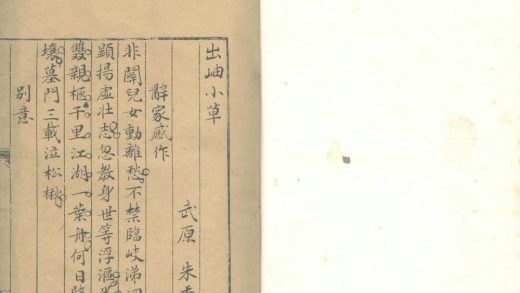 出岫小草
武原 朱
辭家感作
非關兒女動離愁不禁臨岐涕
顯揚虛壯志忽教身世等浮漚
雙親柩千里江湖一葉舟何日
壤墓門三載泣松楸
別意